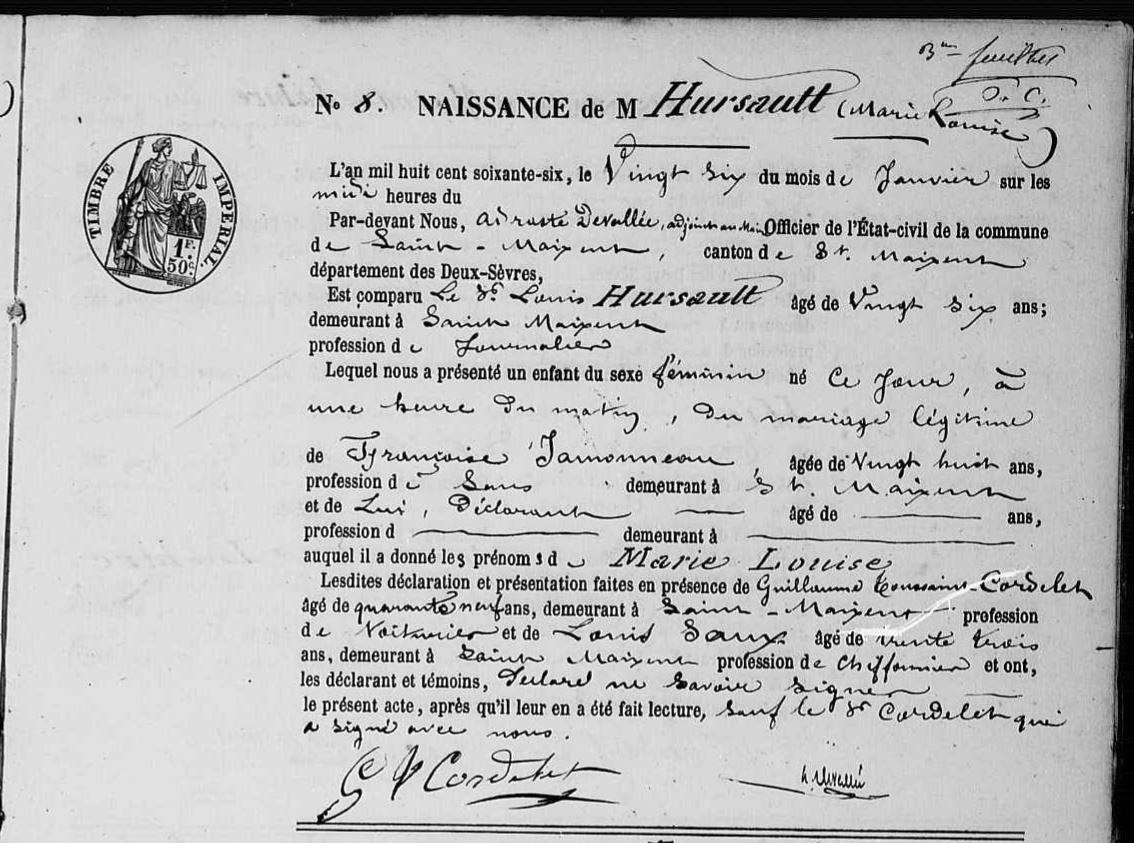 3me feuillet
D. C.
No 8. NAISSANCE de M Hursault (Marie Louise)
TIMBRE IMPERIAL.
1 F. 50 c.
L'an mil huit cent soixante-six, le Vingt Six du mois de Janvier sur les
midi heures du
Par-devant Nous, Adraste Devallée, adjoint au Maire Officier de l'État-civil de la commune
de Saint-Maixent, canton de St. Maixent
département des Deux-Sèvres,
Est comparu Le Sr Louis Hursault âgé de Vingt Six ans;
demeurant à Saint Maixent
profession de Journalier
Lequel nous a présenté un enfant du sexe féminin né Ce Jour, à
une heure du matin, du mariage légitime
de Françoise Jamonneau, âgée de Vingt huit ans,
profession de Sans demeurant à St. Maixent
et de Lui, Déclarant — âgé de — ans,
profession d — demeurant à —
auquel il a donné les prénoms de Marie Louise
Lesdites déclaration et présentation faites en présence de Guillaume Toussaint Cordelet
âgé de quarante neuf ans, demeurant à Saint-Maixent profession
de Voiturier et de Louis Saux âgé de trente trois
ans, demeurant à Saint Maixent profession de Chiffonnier et ont,
les déclarant et témoins, déclaré ne Savoir Signer —
le présent acte, après qu'il leur en a été fait lecture, Sauf le Sr Cordelet qui
a Signé avec nous.
G T Cordelet
A. Devallée